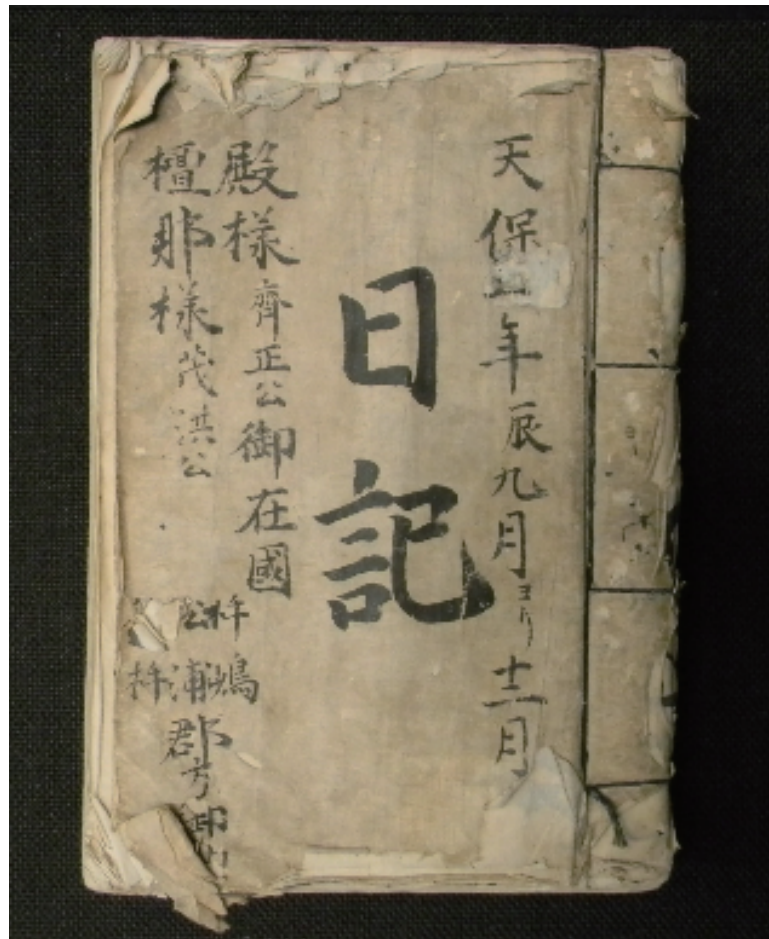 天保三年辰九月ヨリ十二月
日記
殿様齊正公御在國
檀那様茂洪公
杵嶋
松浦
郡方